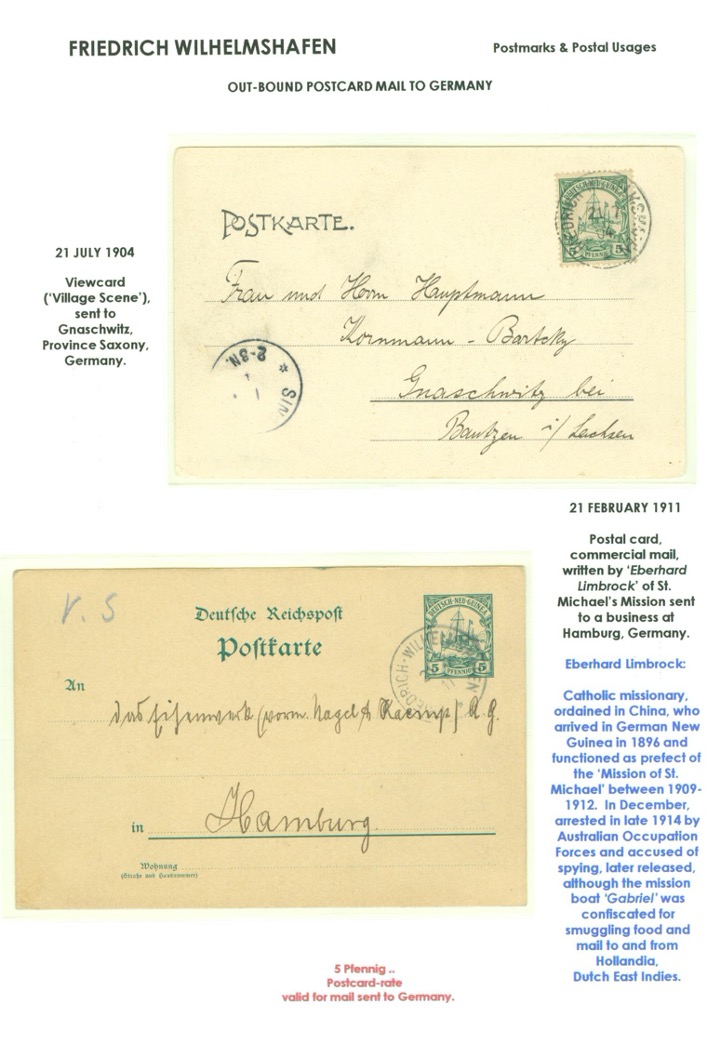 FRIEDRICH WILHELMSHAFEN
Postmarks & Postal Usages
OUT-BOUND POSTCARD MAIL TO GERMANY
21 JULY 1904
Viewcard
('Village Scene'),
sent to
Gnaschwitz,
Province Saxony,
Germany.
POSTKARTE.
DEUTSCH-NEU-GUINEA
5 PFENNIG 5
Frau und Herrn Hauptmann
Kornmann - Bartcky
Gnaschwitz bei
Bautzen i/ Sachsen
2-3N.
* SIN
21 FEBRUARY 1911
Postal card,
commercial mail,
written by 'Eberhard
Limbrock' of St.
Michael's Mission sent
to a business at
Hamburg, Germany.
Eberhard Limbrock:
Catholic missionary,
ordained in China, who
arrived in German New
Guinea in 1896 and
functioned as prefect of
the 'Mission of St.
Michael' between 1909-
1912. In December,
arrested in late 1914 by
Australian Occupation
Forces and accused of
spying, later released,
although the mission
boat 'Gabriel' was
confiscated for
smuggling food and
mail to and from
Hollandia,
Dutch East Indies.
V. S
Deutsche Reichspost
Postkarte
DEUTSCH-NEU-GUINEA
5 PFENNIG 5
FRIEDRICH-WILHELMSHAFEN
An
das Eisenwerk (vorm. Nagel & Kaemp) A. G.
in Hamburg.
Wohnung
(Straße und Hausnummer)
5 Pfennig ..
Postcard-rate
valid for mail sent to Germany.